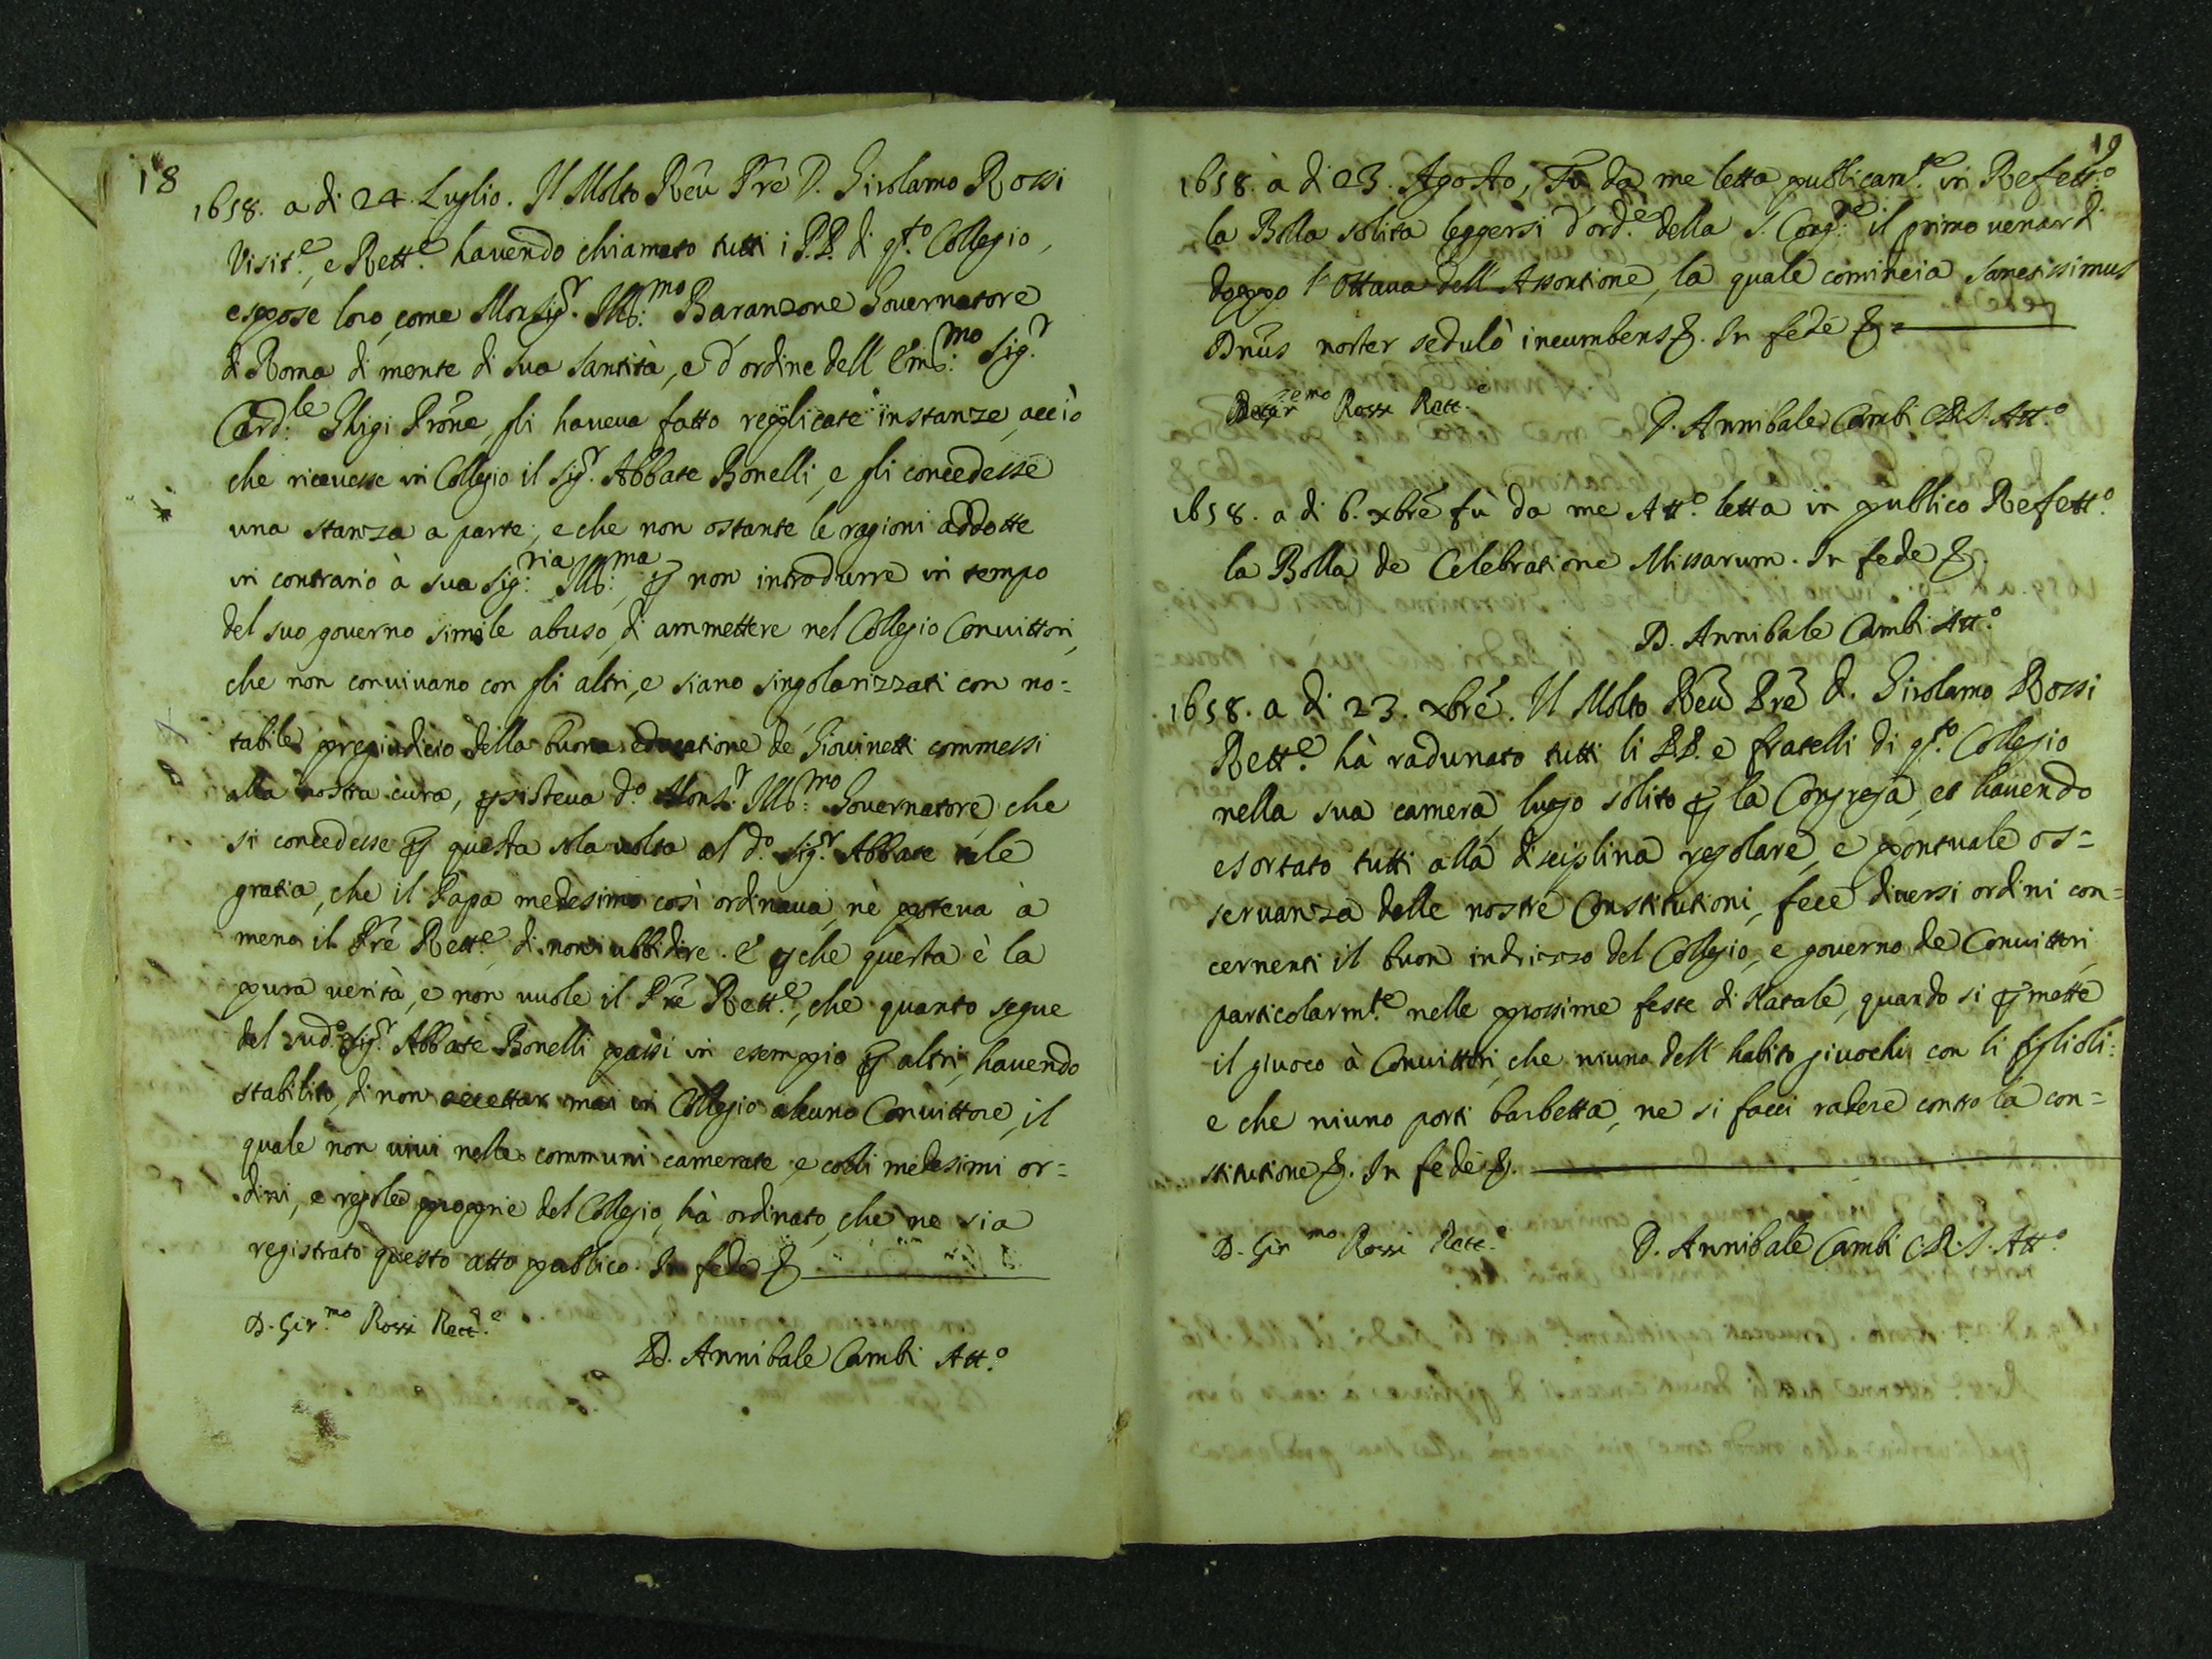 18
1658. a di 24. Luglio. Il Molto Reu Pre D. Girolamo Rossi
Visit.e, e Rett.e hauendo chiamato tutti i P.P. di q.to Collegio,
espose loro, come Monsig.r Ill.mo Baranzone Gouernatore
di Roma di mente di Sua Santità, e d'ordine dell' Em.mo Sig.r
Card.le Ghigi Prone, gli haueua fatto replicate instanze, acciò
che riceuesse in Collegio il Sig.r Abbate Bonelli, e gli concedesse
una stanza a parte; e che non ostante le ragioni addotte
in contrario à sua Sig.ria Ill.ma, p non introdurre in tempo
del suo gouerno simile abuso, di ammettere nel Collegio Conuittori,
che non conuiuano con gli altri, e siano singolarizzati con no=
tabile pregiudicio della buona educatione de' Giouinetti commessi
alla nostra cura, psisteua d.o Mons.r Ill.mo Gouernatore, che
si concedesse p questa sola uolta al d.o Sig.r Abbate tale
gratia, che il Papa medesimo così ordinaua, nè poteua à
meno il Pre Rett.e di non ubbidire. E p che questa è la
pura uerità, e non uuole il Pre Rett.e, che quanto segue
del sud.o Sig.r Abbate Bonelli passi in esempio p altri, hauendo
stabilito, di non accettar mai in Collegio alcuno Conuittore, il
quale non uiui nelle communi camerate, e colli medesimi or=
dini, e regole proprie del Collegio, hà ordinato, che ne sia
registrato questo atto publico. In fede &
D. Gir.mo Rossi Rett.e
D. Annibale Cambi Att.o
19
1658. à di 23. Agosto, Fù da me letta publicam.te in Refett.o
la Bolla solita leggersi d'ord.e della S. Cong.e il primo uenardi
doppo l'Ottaua dell' Assontione, la quale comincia Sanctissimus
Dnus noster sedulò incumbens &. In fede &
Rossi Rett.e
D. Annibale Cambi C.R.S. Att.o
1658. a di 6. xbre fù da me Att.o letta in publico Refett.o
la Bolla de Celebratione Missarum. In fede &.
D. Annibale Cambi Att.o
1658. a di 23. xbre. Il Molto Reu Pre D. Girolamo Rossi
Rett.e hà radunato tutti li PP. e fratelli di q.to Collegio
nella sua camera, lugo solito p la Congrega, et hauendo
esortato tutti alla disciplina regolare, e pontuale os=
seruanza delle nostre Constitutioni, fece diuersi ordini con=
cernenti il buon indrizzo del Collegio, e gouerno de Conuittori,
particolarm.te nelle prossime feste di Natale, quando si pmette
il giuoco à Conuittori, che niuno dell' habito giuochi con li figlioli:
e che niuno porti barbetta, ne si facci radere contro la con=
stitutione &. In fede &.
D. Gir.mo Rossi Rett.e
D. Annibale Cambi C.R.S. Att.o